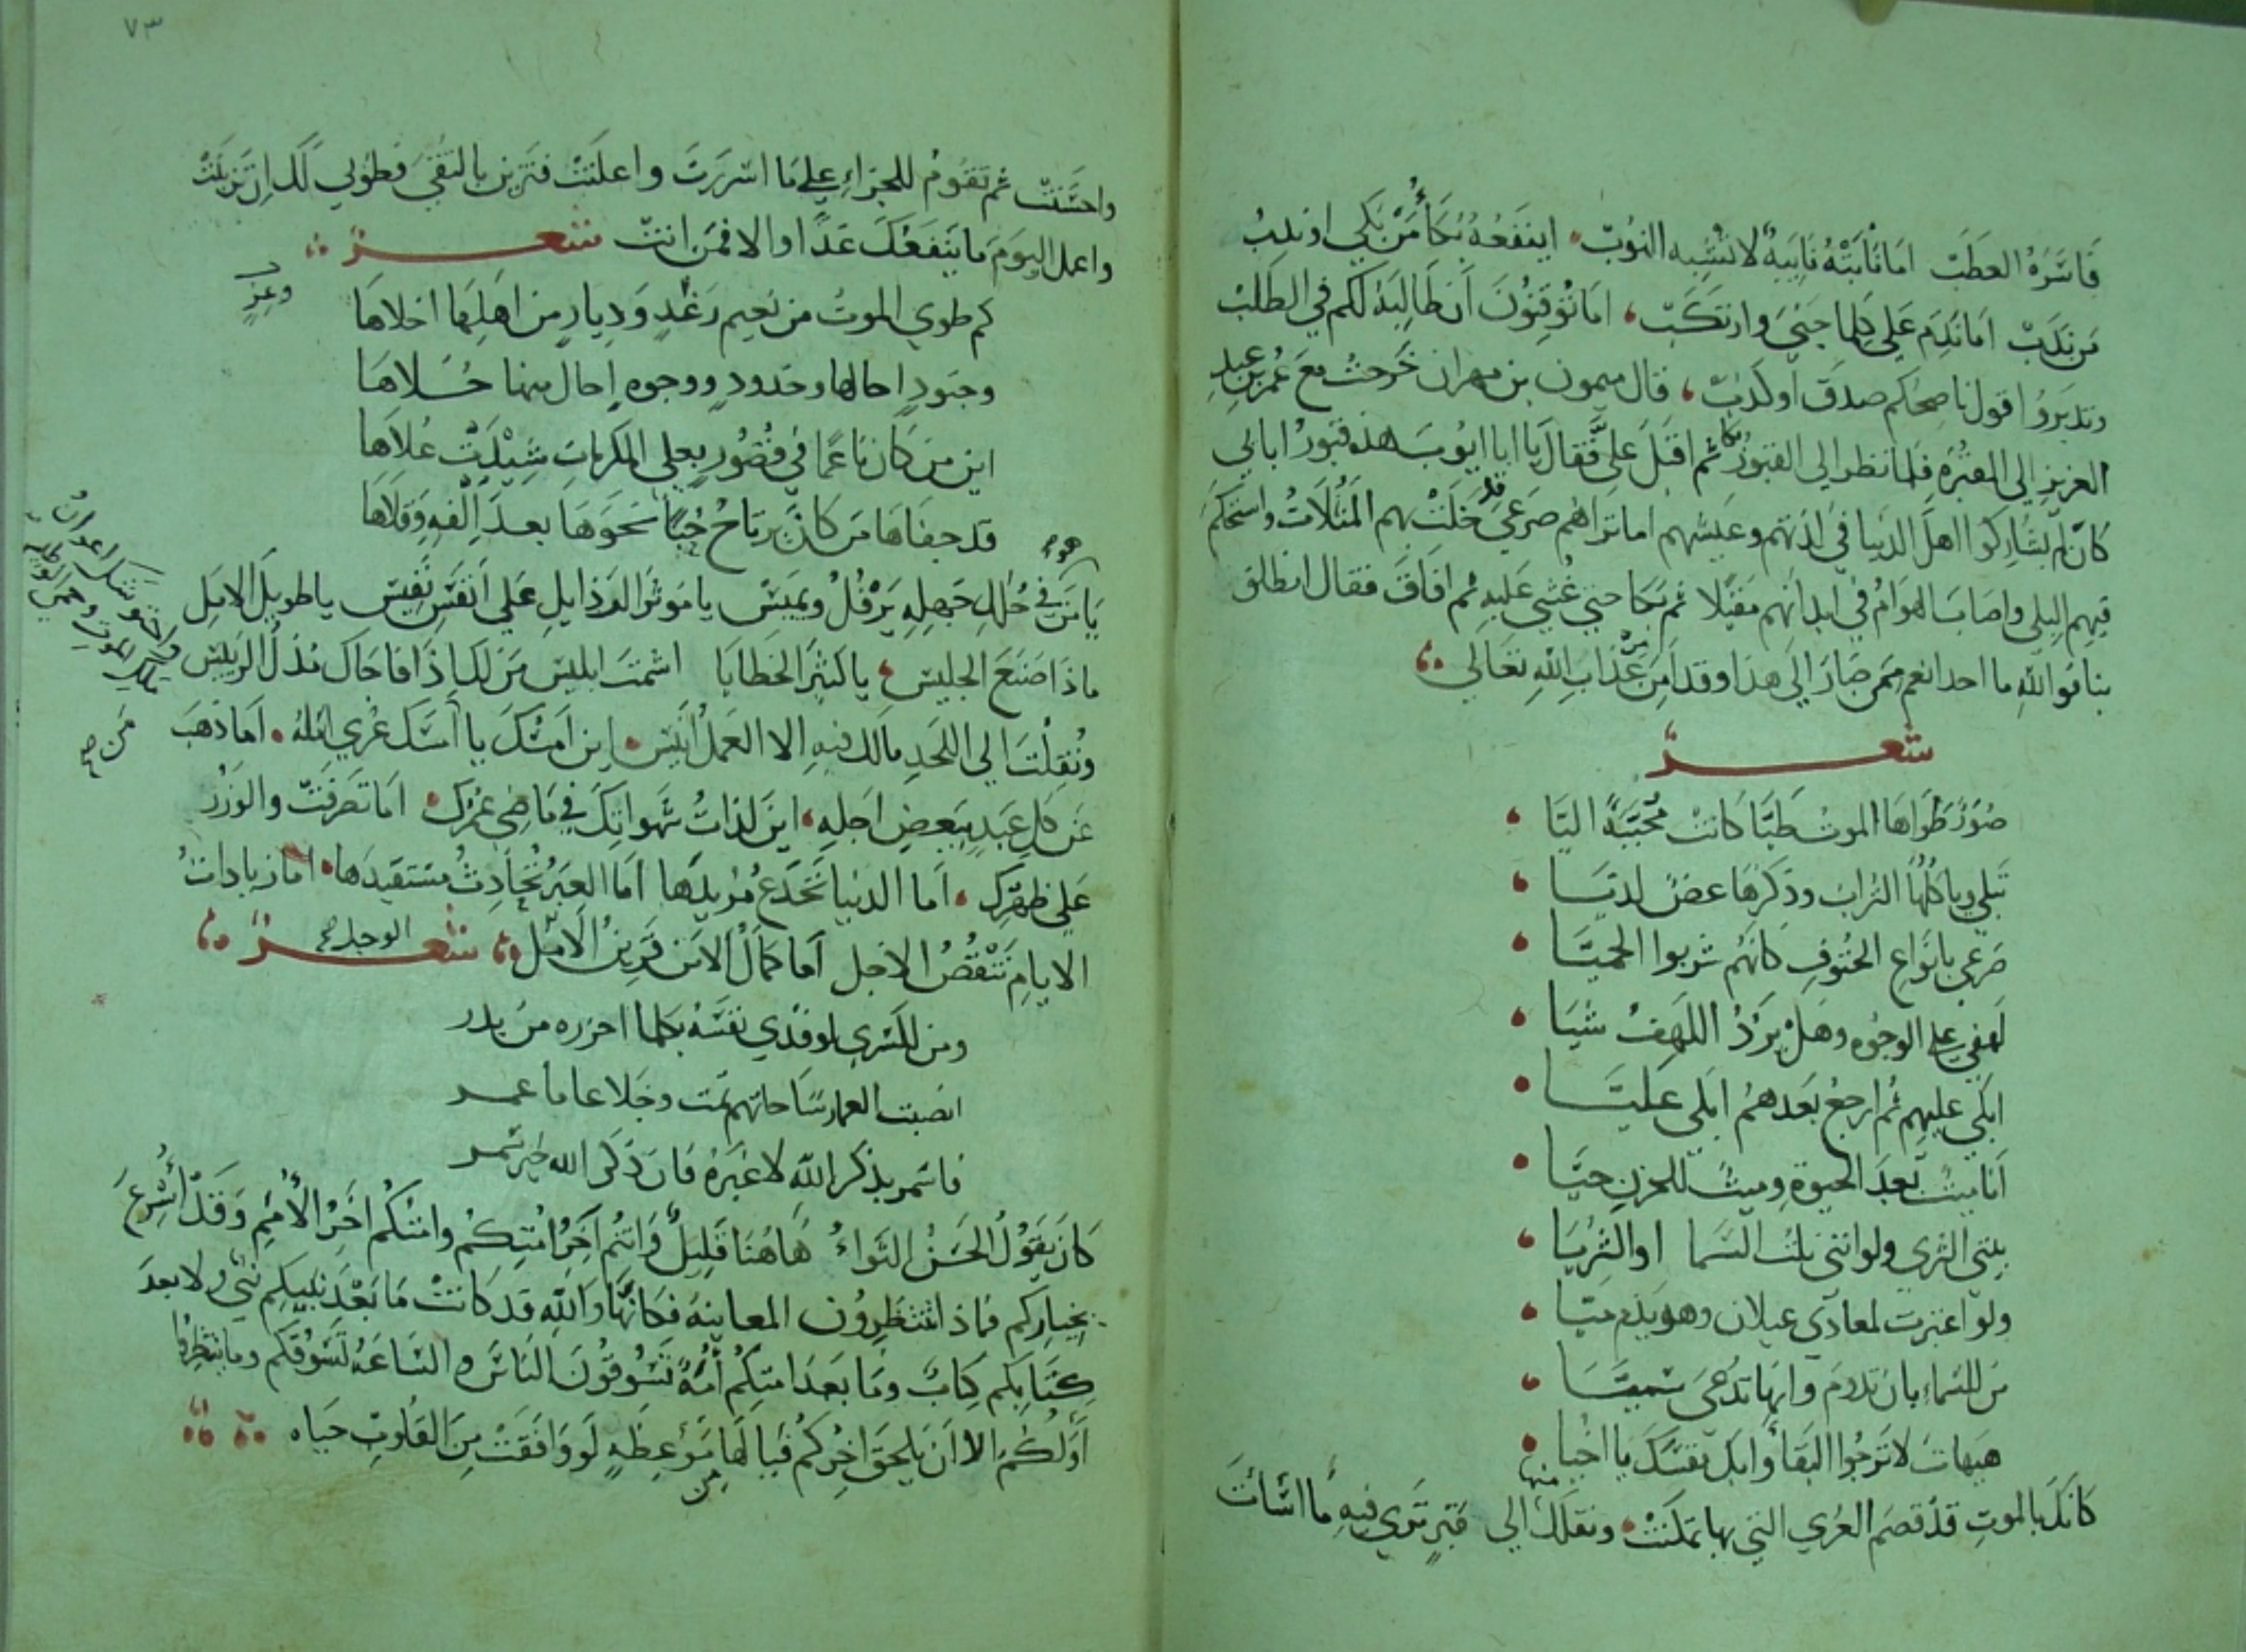 فاسَرَهُ العطَب اما نابَتْهُ نايبةٌ لا تشبه النوب اينفعه بُكأُ من بَكي او ندبُ
من نَدَبْ اما نَدِمَ عَلي كلما جنيَ وارتكَبْ اما توقِنُونَ اَن طالِبَهُ لكم في الطلبْ
وتدبروُا قول ناصحكم صدقَ او كذبْ قال ميمون بن مهران خرجتُ معَ عُمر بن عبد
العزيز الي المقبُرة فلما نظر الي القبور بكا ثم اقبَل علَيَّ فقالَ يا ابا ايوب هذه قبورُ ابايي
كان لم يشاركوا اهلَ الدنيا في لذتهم وعيشهم اما تراهُم صَرعَي قد خلَتْ بهم المَثُلاتُ واستحكمَ
فيهم البِلي واصابَ الهوامُ في ابدانهم مقيلا ثم بَكا حتي غُشي عَليهِ ثم افاقَ فقال انطلق
بنا فوالله ما احدا نعم ممن صَارَ اِلَي هذا وقد امِنَ من عذابِ اللهِ تعَالي
شعر
صُوَرٌ طَوَاها الموتُ طيَّا كَانتْ مُحَبّبَةً اليَّا
تَبلَي وياكلُها الترابَ وذكرُها غضٌ لديَّا
صَرعي بانوَاعِ الحُتوفِ كانَهُم شربوا الحميَّا
لَهفي علي الوجُوه وهَل يَرُدُ اللهفُ شيَا
ابكي عليهم ثم ارجعُ بعدَهم ابكي عليَّا
اَنا ميتٌ بعدَ الحيوة وميتٌ للحزنِ حيَّا
بيتي الثري ولو انني نلتُ السَما او الثريَا
ولو اغتررت لمعادي غيلان وهو يذم ميَّا
من للسَماءِ بان تدومَ وانها تدعَي سميَّا
هيهات لا ترجُوا البقَا وابك نفسَكَ يا اخيا
كانكَ بالموتِ قد قصَم العُري التي بها تمسكتْ ونقلَكَ منها الي قبرٍ تَري فيهِ ما اسَاتَ
٧٣
واحسَنتْ ثم تقومُ للجزاءِ علي مَا اسررتَ واعلَنتْ فتزين بالتقَيَ فطوبي لَكَ اِن تزينتْ
واعمل اليومَ ما ينفعُكَ غدًا والا فمن انتْ شعر
كم طوي الموتُ من نعيم رَغْدٍ وَديارٍ من اَهلِهَا اخلاهَا
وعزٍ
وجنودٍ احالها وخدودٍ ووجوهٍ احَال منها حُلاهَا
اين من كانَ ناعمًا في قُصُورٍ بعلي المكرماتِ شيْدَتْ عُلاَها
قد جفَاهَا مَن كانَ يرتاحُ حُبًا نحوَهَا بعدَ اِلفهِ وقلاها
يَا مَن هو في حُلَلِ جَهلِهِ يَرفُلُ ويميسْ يا موثرَ الرذايلِ عَلي اَنفَسِ نفيسْ يا طويلَ الامَلِ
ماذا صَنَعَ الجليسْ يا كثيرَ الخطايا اشمتَ ابليسْ مَن لكَ اِذَا فاجَاكَ مُذلُ الرييسْ
ونُقِلْتَ الي اللَحدِ مالك فيهِ الا العَملُ انيسْ اين اَمسُكَ يا اسَكَ اَما ذهَبَ
من صح
مَن كلِ عبَدٍ ببعضِ اجَلِهِ اينَ لذاتُ شهواتِكَ في مَا مضي عمُرِك اَما تَصرفَتْ والوِزرُ
عَلي ظهرِكَ اَما الدنيا تَخدعُ مُريدَها اَما العِبَرُ تُحَادِثُ مستفيدَها اما زيادات
الايامِ تنقُصُ الاجل اَما كمالُ الامَن قرينُ الوجل صح الاَمل شعر
ومن لكسري لو فدي نفسَهُ بكلما احرزه من بدر
فاسمر بذكرِ اللهِ لا غيرَهُ فان ذكري الله خير سمر
كانَ يقوُلُ الحَسَنُ الثواءُ هَاهُنا قليلٌ وَانتُم آخِرُ امتِكمُ وامتكُم اخَرُ الاُمَمِ وَقَدْ اُسْرِعَ
بخيارِكم فماذا تنتظِروُن المعاينةَ فكانَّهَا واللهِ قد كانتْ مَا بَعْدَ نبيكِم نبيٌ ولا بعدَ
كِتَابِكم كِتابٌ ومَا بعدَ امتِكُم اُمةٌ تسُوقُونَ الناسَ والسَاعَةُ تَسُوقُكَم وما ينتظِرُ
اَوَلُكُم الا اَن يلحقَ اخِرُكُم فيا لهَا مَوعظةٍ لو وَافقَتْ مِنَ القلوبِ حَياه
من